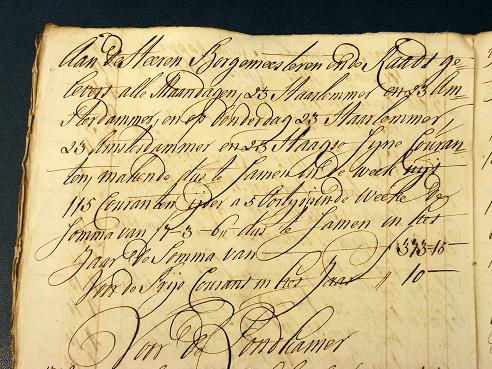 Aan de Heeren Borgemeesteren ende Raadt ge-
levert alle Maandagen, 23 Haarlemmer en 23 Am-
sterdammer, en op Donderdag 23 Haarlemmer,
23 Amsterdammer en 23 Haagse fyne Couran-
ten, makende dus te samen in de week
115 Couranten ijder a 5 Weeke de
Somma van 17-3-6 dus te samen in het
Jaar de Somma van
Voor de Prijs Courant in het Jaar 10
Voor de Kondkamer